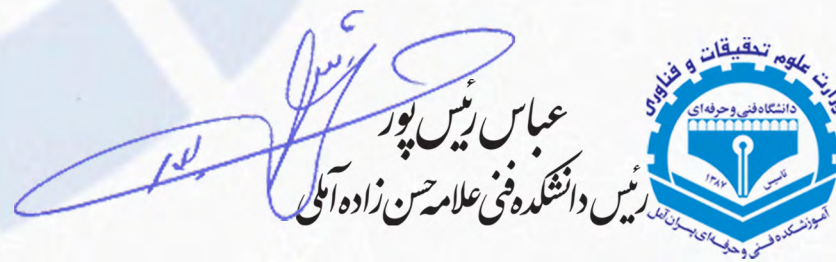 عباس رئیس پور
رئیس دانشکده فنی علامه حسن زاده آملی
وزارت علوم تحقیقات و فناوری
دانشگاه فنی و حرفه‌ای
تاسیس
۱۳۸۷
آموزشکده فنی و حرفه‌ای پسران آمل